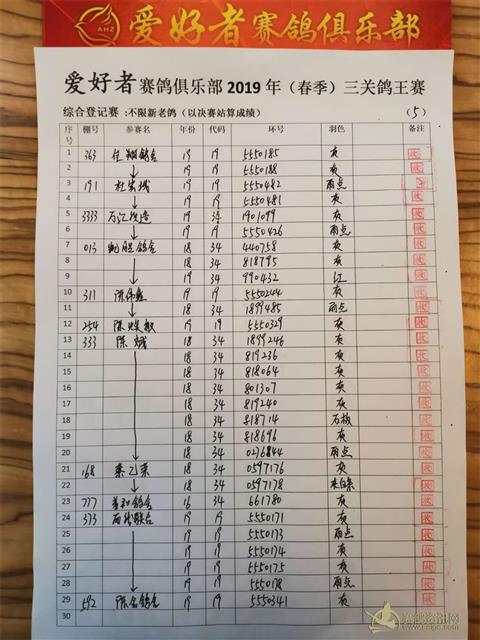 AHZ 爱好者赛鸽俱乐部
爱好者赛鸽俱乐部2019年（春季）三关鸽王赛
综合登记赛:不限新老鸽（以决赛站算成绩） （5）
序号 棚号 参赛名 年份 代码 环号 羽色 备注
1 363 鸽舍 19 19 5550185 灰
2 19 19 5550188 灰
3 191 19 19 5550482 雨点
4 19 19 5550481 灰
5 3333 19 34 1901099 灰
6 19 19 5550426 雨点
7 013 鸽舍 18 34 440758 灰
8 18 34 818795 灰
9 19 34 990432 红
10 311 陈伟鑫 19 19 5550244 灰
11 18 34 1899485 雨点
12 254 陈 19 19 5550329 灰
13 333 陈斌 18 34 1899246 灰
14 18 34 819236 灰
15 18 34 818064 灰
16 18 34 801307 灰
17 18 34 819240 灰
18 18 34 818714 石板
19 18 34 818696 灰
20 18 34 0276844 雨点
21 168 18 34 0597176 灰
22 18 34 0597178
23 777 鸽舍 16 34 661780 灰
24 373 联合 19 19 5550171 灰
25 19 19 5550173 雨点
26 19 19 5550174 灰
27 19 19 5550175 灰
28 19 19 5550178 雨点
29 592 鸽舍 19 19 5550341 灰
30